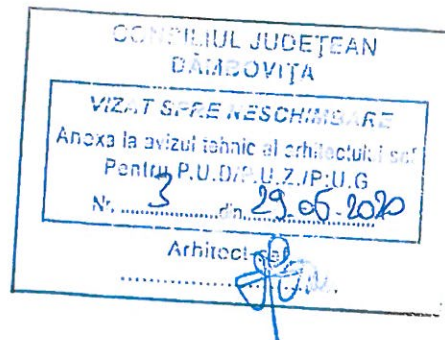 CONSILIUL JUDEȚEAN
DÂMBOVIȚA
VIZAT SPRE NESCHIMBARE
Anexa la avizul tehnic al arhitectului șef
Pentru P.U.D/P.U.Z./P.U.G
Nr. 3 din 29.05.2020
Arhitect șef